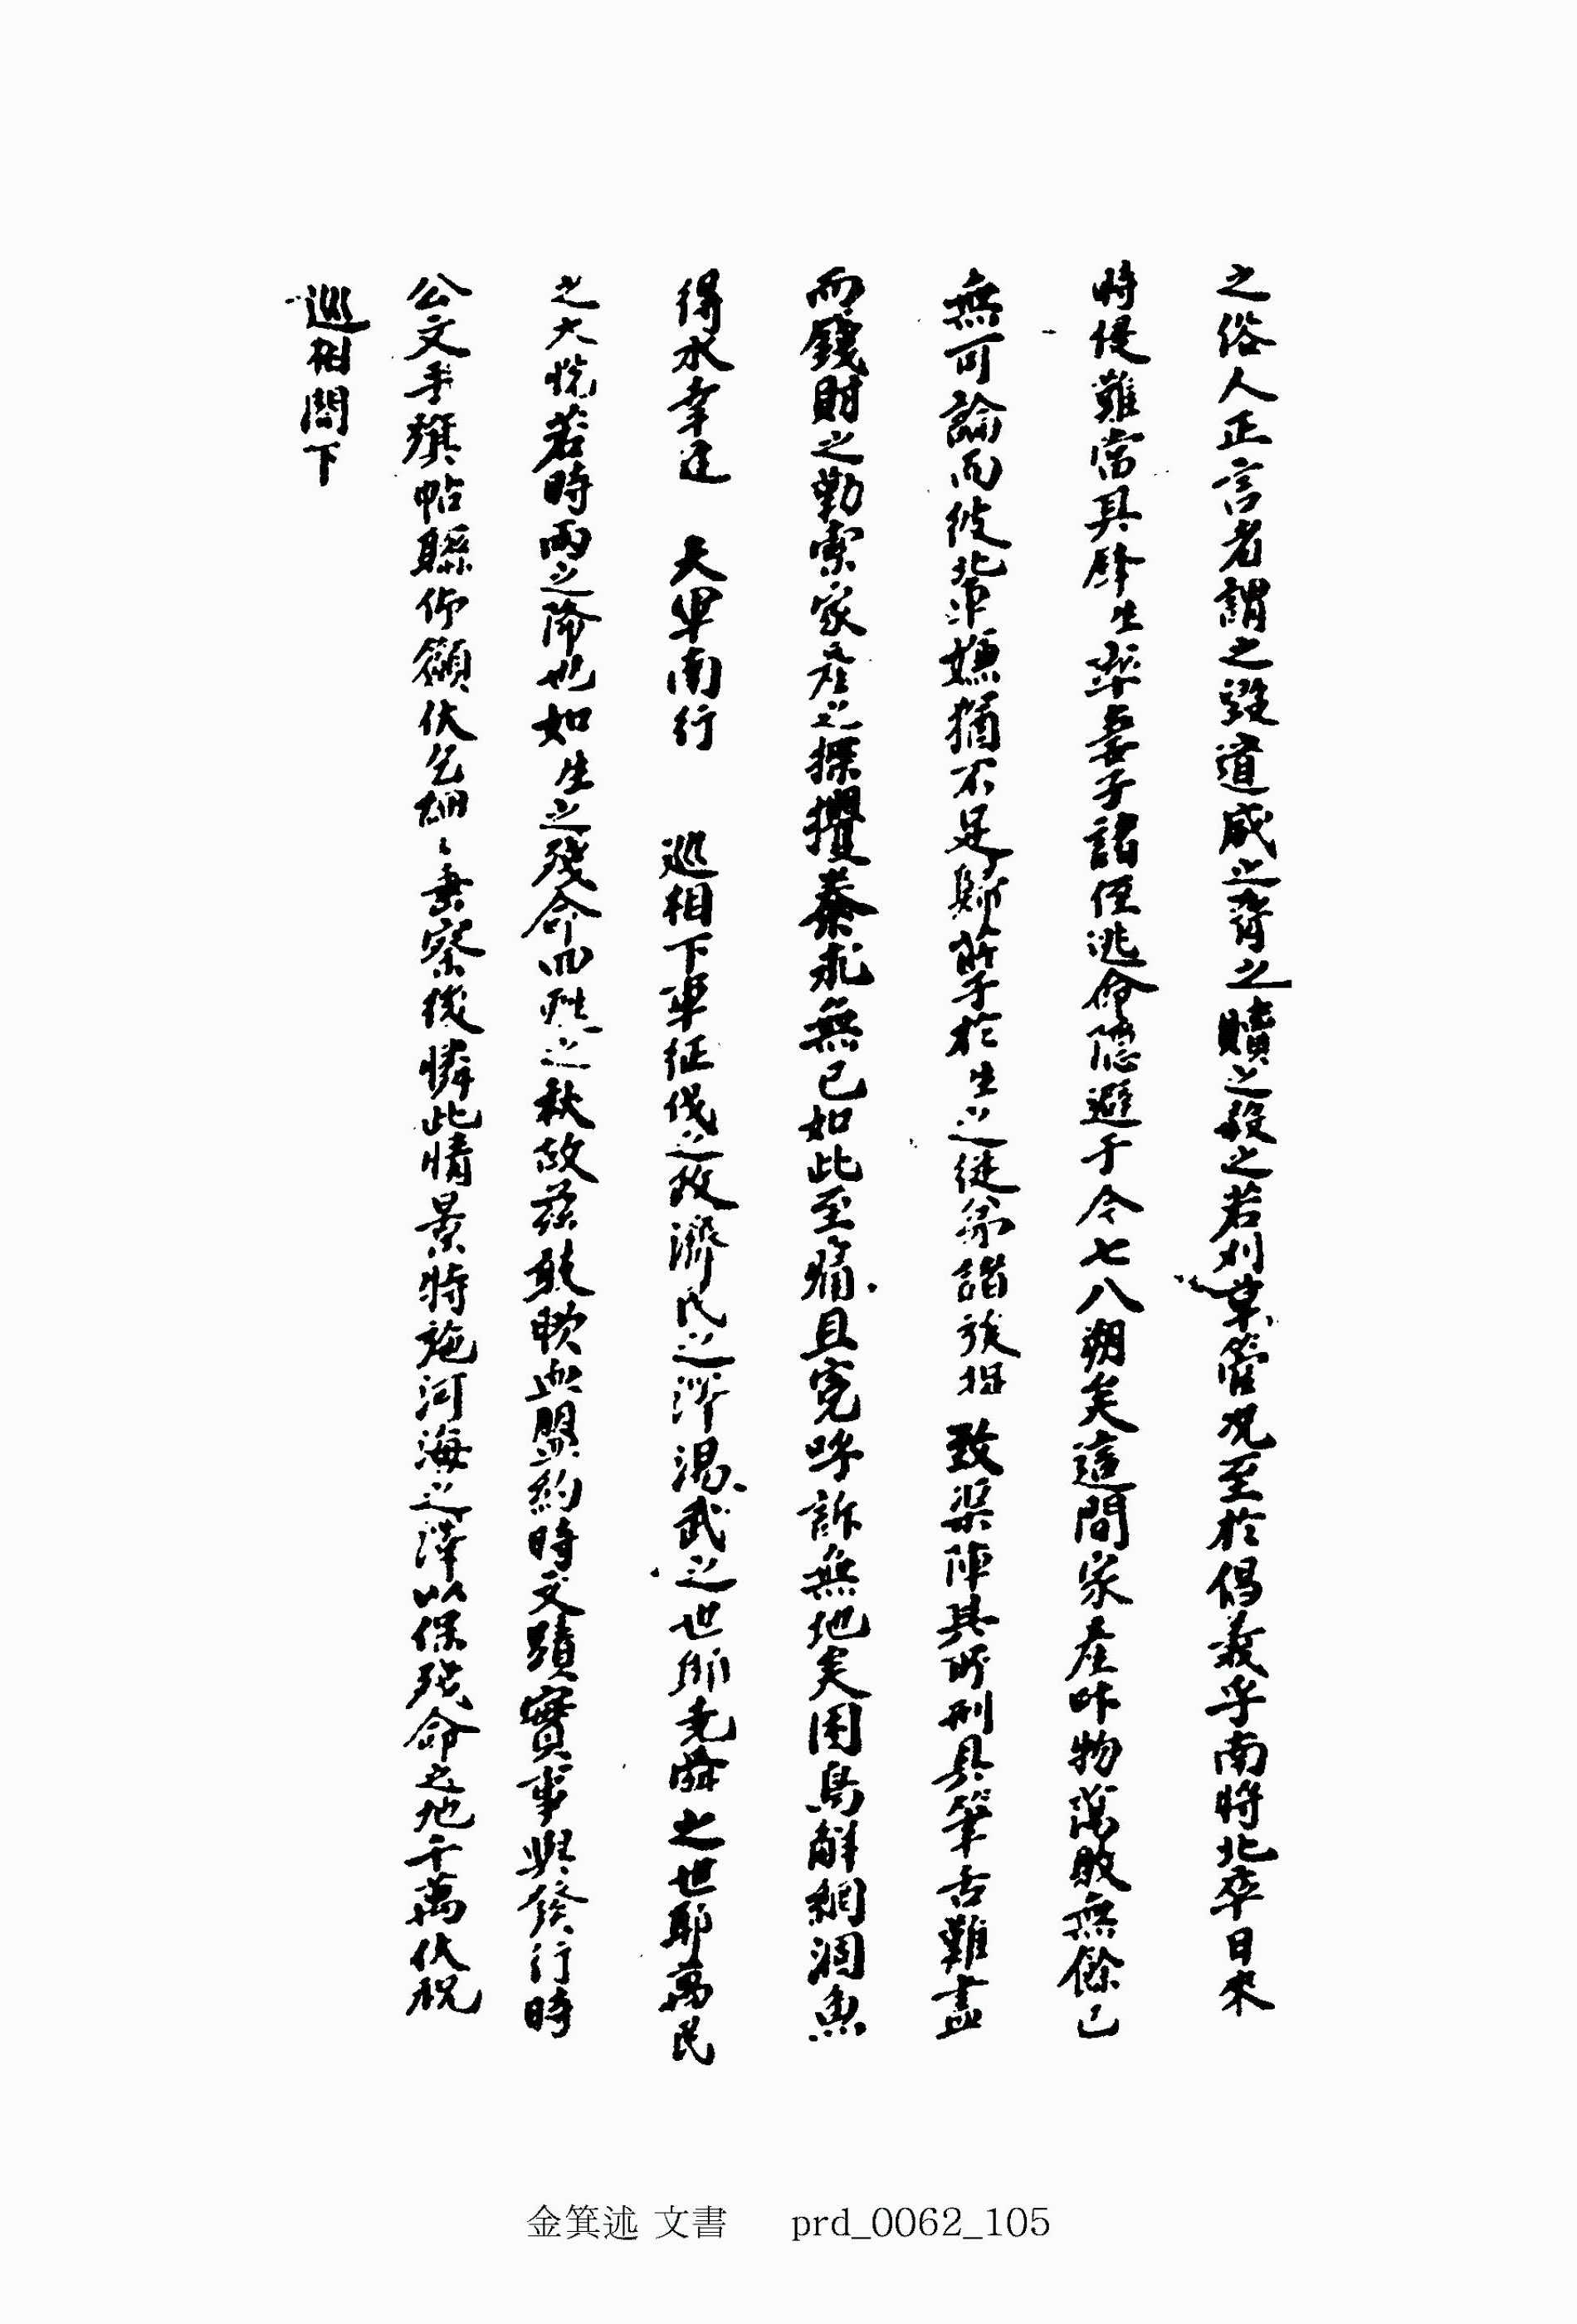 之俗人正言者謂之毀道威之脅之贖之殺之若刈草管況至於倡義乎南將北卒日來
時侵難當具肆生率妻子諸侄逃命隱避于今七八朔矣這間家產什物蕩敗無餘已
無可論而彼輩嫌猶不足歸禁于於生之徒弟諸族捉致渠陣其所刑具筆舌難盡
而錢財之勒索家産之探攫秦乱無已如此至痛且寃呼訴無地矣困鳥解網涸魚
得水幸逢 大軍南行 巡相下車征伐之政濟民之澤湯武之世耶堯舜之世耶萬民
之大悅若時雨之降也如生之殘命回甦之秋故茲敢歃血盟約時文蹟實事與發行時
公文手撰帖聯仰籲伏乞細〻垂察後憐此情景特施河海之澤以保殘命之地千萬伏祝
巡相閤下
金箕述 文書 prd_0062_105